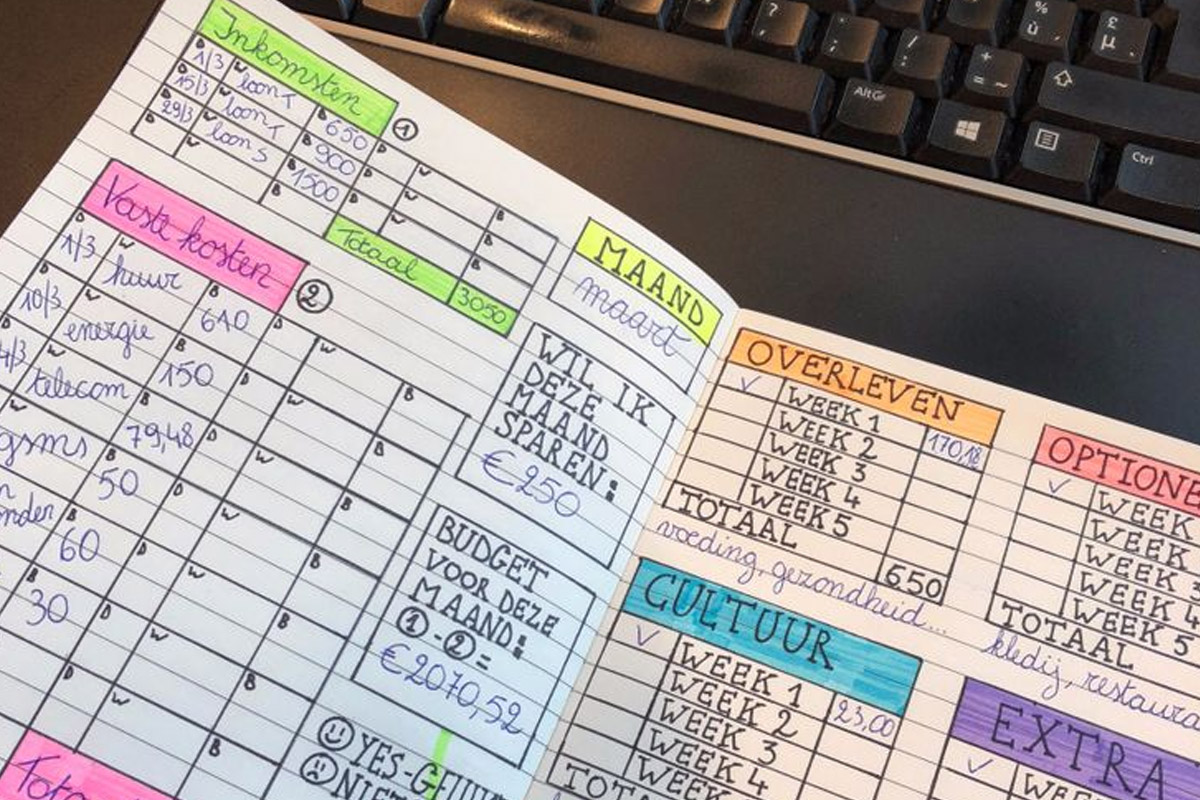 Inkomsten ①
D 1/3 W loon T B 650 D W B
D 15/3 W loon T B 900 D W B
D 29/3 W loon S B 1500 D W B
D W B
Totaal 3050
Vaste kosten ②
D 1/3 W huur B 640 D W B
D 10/3 W energie B 150 D W B
D W telecom B 79,48 D W B
W gsms B 50 D W B
B 60 D W B
B 30 D W B
D W B
MAAND
maart
WIL IK
DEZE
MAAND
SPAREN:
€250
BUDGET
VOOR DEZE
MAAND:
①-②=
€2070,52
YES-
NIET
OVERLEVEN
✓ WEEK 1 170,18
WEEK 2
WEEK 3
WEEK 4
WEEK 5
TOTAAL 650
voeding, gezondheid...
CULTUUR
✓ WEEK 1 23,00
WEEK 2
WEEK 3
WEEK 4
WEEK
✓ WEEK
WEEK
WEEK
WEEK 4
WEEK 5
TOTAAL
kledij,
EXTRA
✓
% ù
£ µ
?
;
/
+ = ~
AltGr
Ctrl